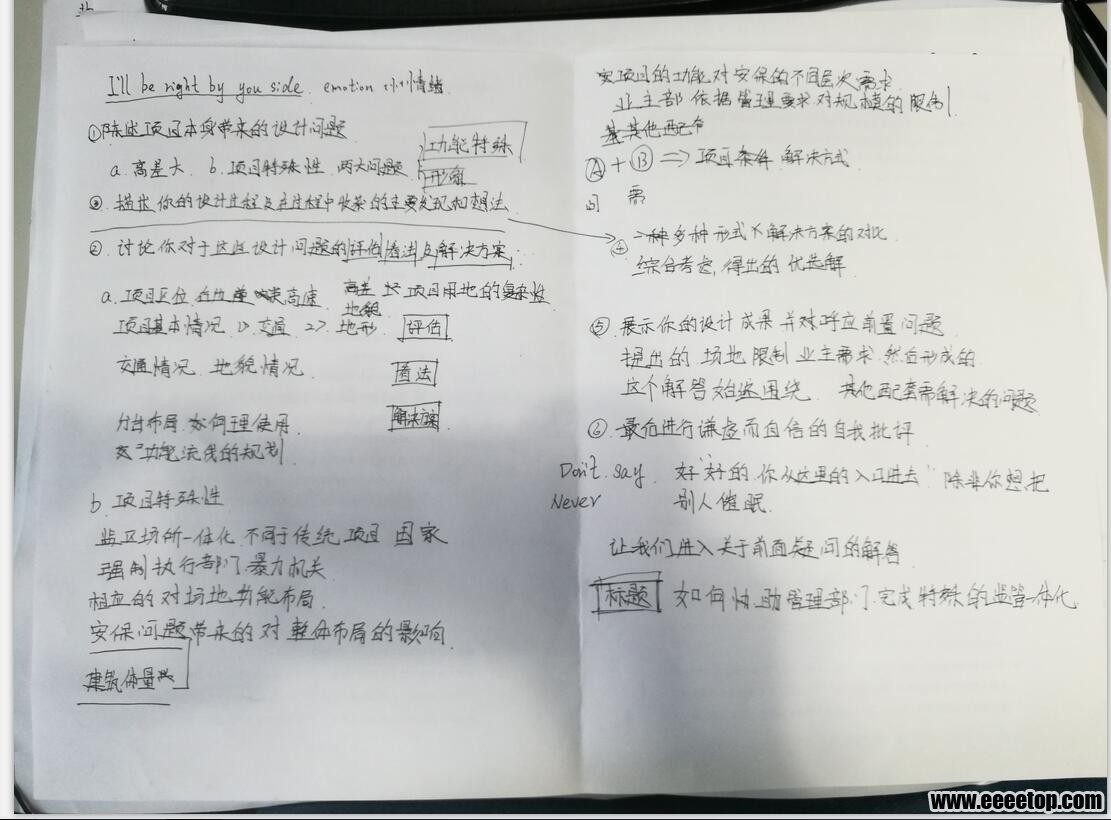 I'll be right by you side. emotion 小小情绪
①陈述项目本身带来的设计问题
a.高差大 b.项目特殊性 两大问题
功能特殊
形象
③.描述你的设计过程及在过程中收集的主要发现和想法
②.讨论你对于这些设计问题的评估看法及解决方案.
a.项目区位 高速. 高差 项目用地的复杂性
地貌
项目基本情况 1>交通 2>地形 评估
交通情况 地貌情况. 看法
台布局 如何理使用 解决方案
功能流线的规划
b.项目特殊性
监区场所一体化 不同于传统项目 国家
强制执行部门.暴力机关
相应的对场地功能布局.
安保问题带来的对整体布局的影响.
建筑体量
项目的功能对安保的不同层次需求
业主部依据管理要求对规模的限制
其他配
A + B => 项目条件 解决方式
问 需
④ 多种形式 解决方案的对比
综合考虑,得出的优选解.
⑤ 展示你的设计成果并对呼应前置问题
提出的场地限制业主需求.然后形成的
这个解答始终围绕. 其他配套需解决的问题
⑥.最后进行谦虚而自信的自我批评
Don't. say. 好"好的.你从这里的入口进去" 除非你想把
Never 别人催眠.
让我们进入关于前面疑问的解答
标题 如何协助管理部门.完成特殊的监管一体化
www.eeeetop.com